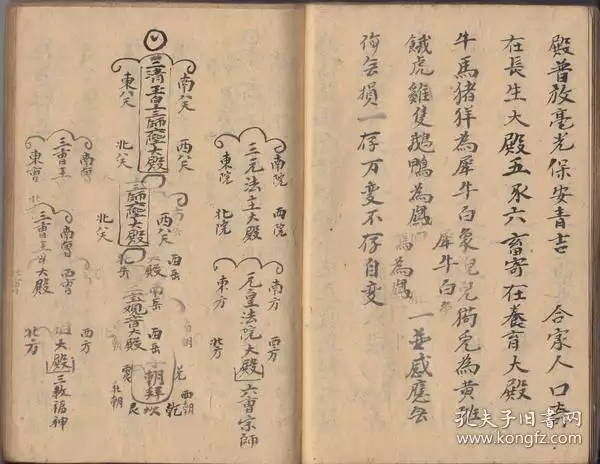 殿普放毫光保安青吉 合家人口寄
在長生大殿五豕六畜寄在養育大殿
牛馬猪羊為犀牛白象兒兒狗兎為黄雅
犀牛白
餓虎雞隻鵝鴨為鳳 一並感應无
為鳳
傷无損一存万变不存自变
三元法主大殿
南院
西院
東院
北院
元皇法院大殿
南方
西方
六曹宗師
三清玉皇三師陞大殿
南八天
西八天
東八天
北八天
三師陞大殿
西八天
北八天
西岳
南岳
北岳
三宝观音大殿
西岳
朝拜
坎
乾
艮
西朝
北朝
三曹王
南曹
東曹
三曹王母大殿
南曹
西曹
大殿
西方
北方
三教福神
孔夫子旧书网
www.kongfz.com